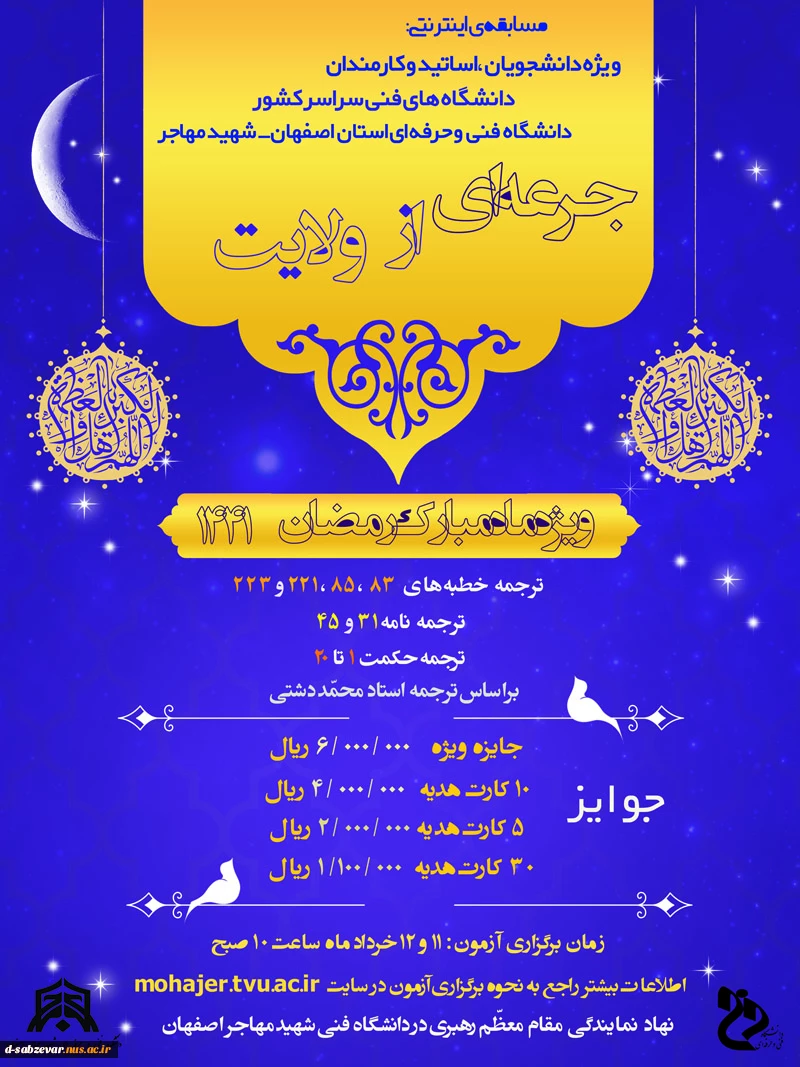 مسابقه‌ی اینترنتی:
ویژه دانشجویان ،اساتید و کارمندان
دانشگاه های فنی سراسر کشور
دانشگاه فنی و حرفه ای استان اصفهان_ شهید مهاجر
جرعه‌ای از ولایت
ویژه ماه مبارک رمضان ۱۴۴۱
ترجمه خطبه های ۸۳ ،۸۵ ،۲۲۱ و ۲۲۳
ترجمه نامه ۳۱ و ۴۵
ترجمه حکمت ۱ تا ۲۰
براساس ترجمه استاد محمّد دشتی
جوایز
جایزه ویژه ۶/۰۰۰/۰۰۰ ریال
۱۰ کارت هدیه ۴/۰۰۰/۰۰۰ ریال
۵ کارت هدیه ۲/۰۰۰/۰۰۰ ریال
۳۰ کارت هدیه ۱/۱۰۰/۰۰۰ ریال
زمان برگزاری آزمون : ۱۱ و ۱۲ خرداد ماه ساعت ۱۰ صبح
اطلاعات بیشتر راجع به نحوه برگزاری آزمون در سایت mohajer.tvu.ac.ir
نهاد نمایندگی مقام معظّم رهبری در دانشگاه فنی شهید مهاجر اصفهان
d-sabzevar.nus.ac.ir